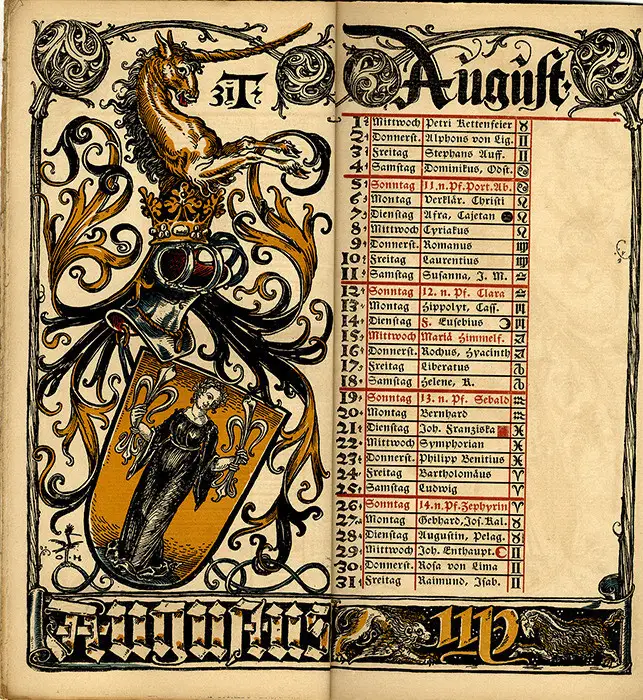 31 T.
August.
1. Mittwoch Petri Kettenfeier ♉
2. Donnerst. Alphons von Lig. ♊
3. Freitag Stephans Auff. ♊
4. Samstag Dominikus, Obst. ♋
5. Sonntag 11. n. Pf. Port. Ab. ♋
6. Montag Verklär. Christi ♌
7. Dienstag Afra, Cajetan ♌
8. Mittwoch Cyriakus ♌
9. Donnerst. Romanus ♍
10. Freitag Laurentius ♍
11. Samstag Susanna, J. M. ♎
12. Sonntag 12. n. Pf. Clara ♎
13. Montag Hippolyt, Cass. ♏
14. Dienstag F. Eusebius ☽ ♏
15. Mittwoch Mariä Himmelf. ♐
16. Donnerst. Rochus, Hyacinth ♐
17. Freitag Liberatus ♑
18. Samstag Helene, K. ♑
19. Sonntag 13. n. Pf. Sebald ♒
20. Montag Bernhard ♒
21. Dienstag Joh. Franziska ♓
22. Mittwoch Symphorian ♓
23. Donnerst. Philipp Benitius ♓
24. Freitag Bartholomäus ♈
25. Samstag Ludwig ♈
26. Sonntag 14. n. Pf. Zephyrin ♈
27. Montag Gebhard, Jos. Kal. ♉
28. Dienstag Augustin, Pelag. ♉
29. Mittwoch Joh. Enthaupt. ☾ ♊
30. Donnerst. Rosa von Lima ♊
31. Freitag Raimund, Isab. ♊
Augustus ♍